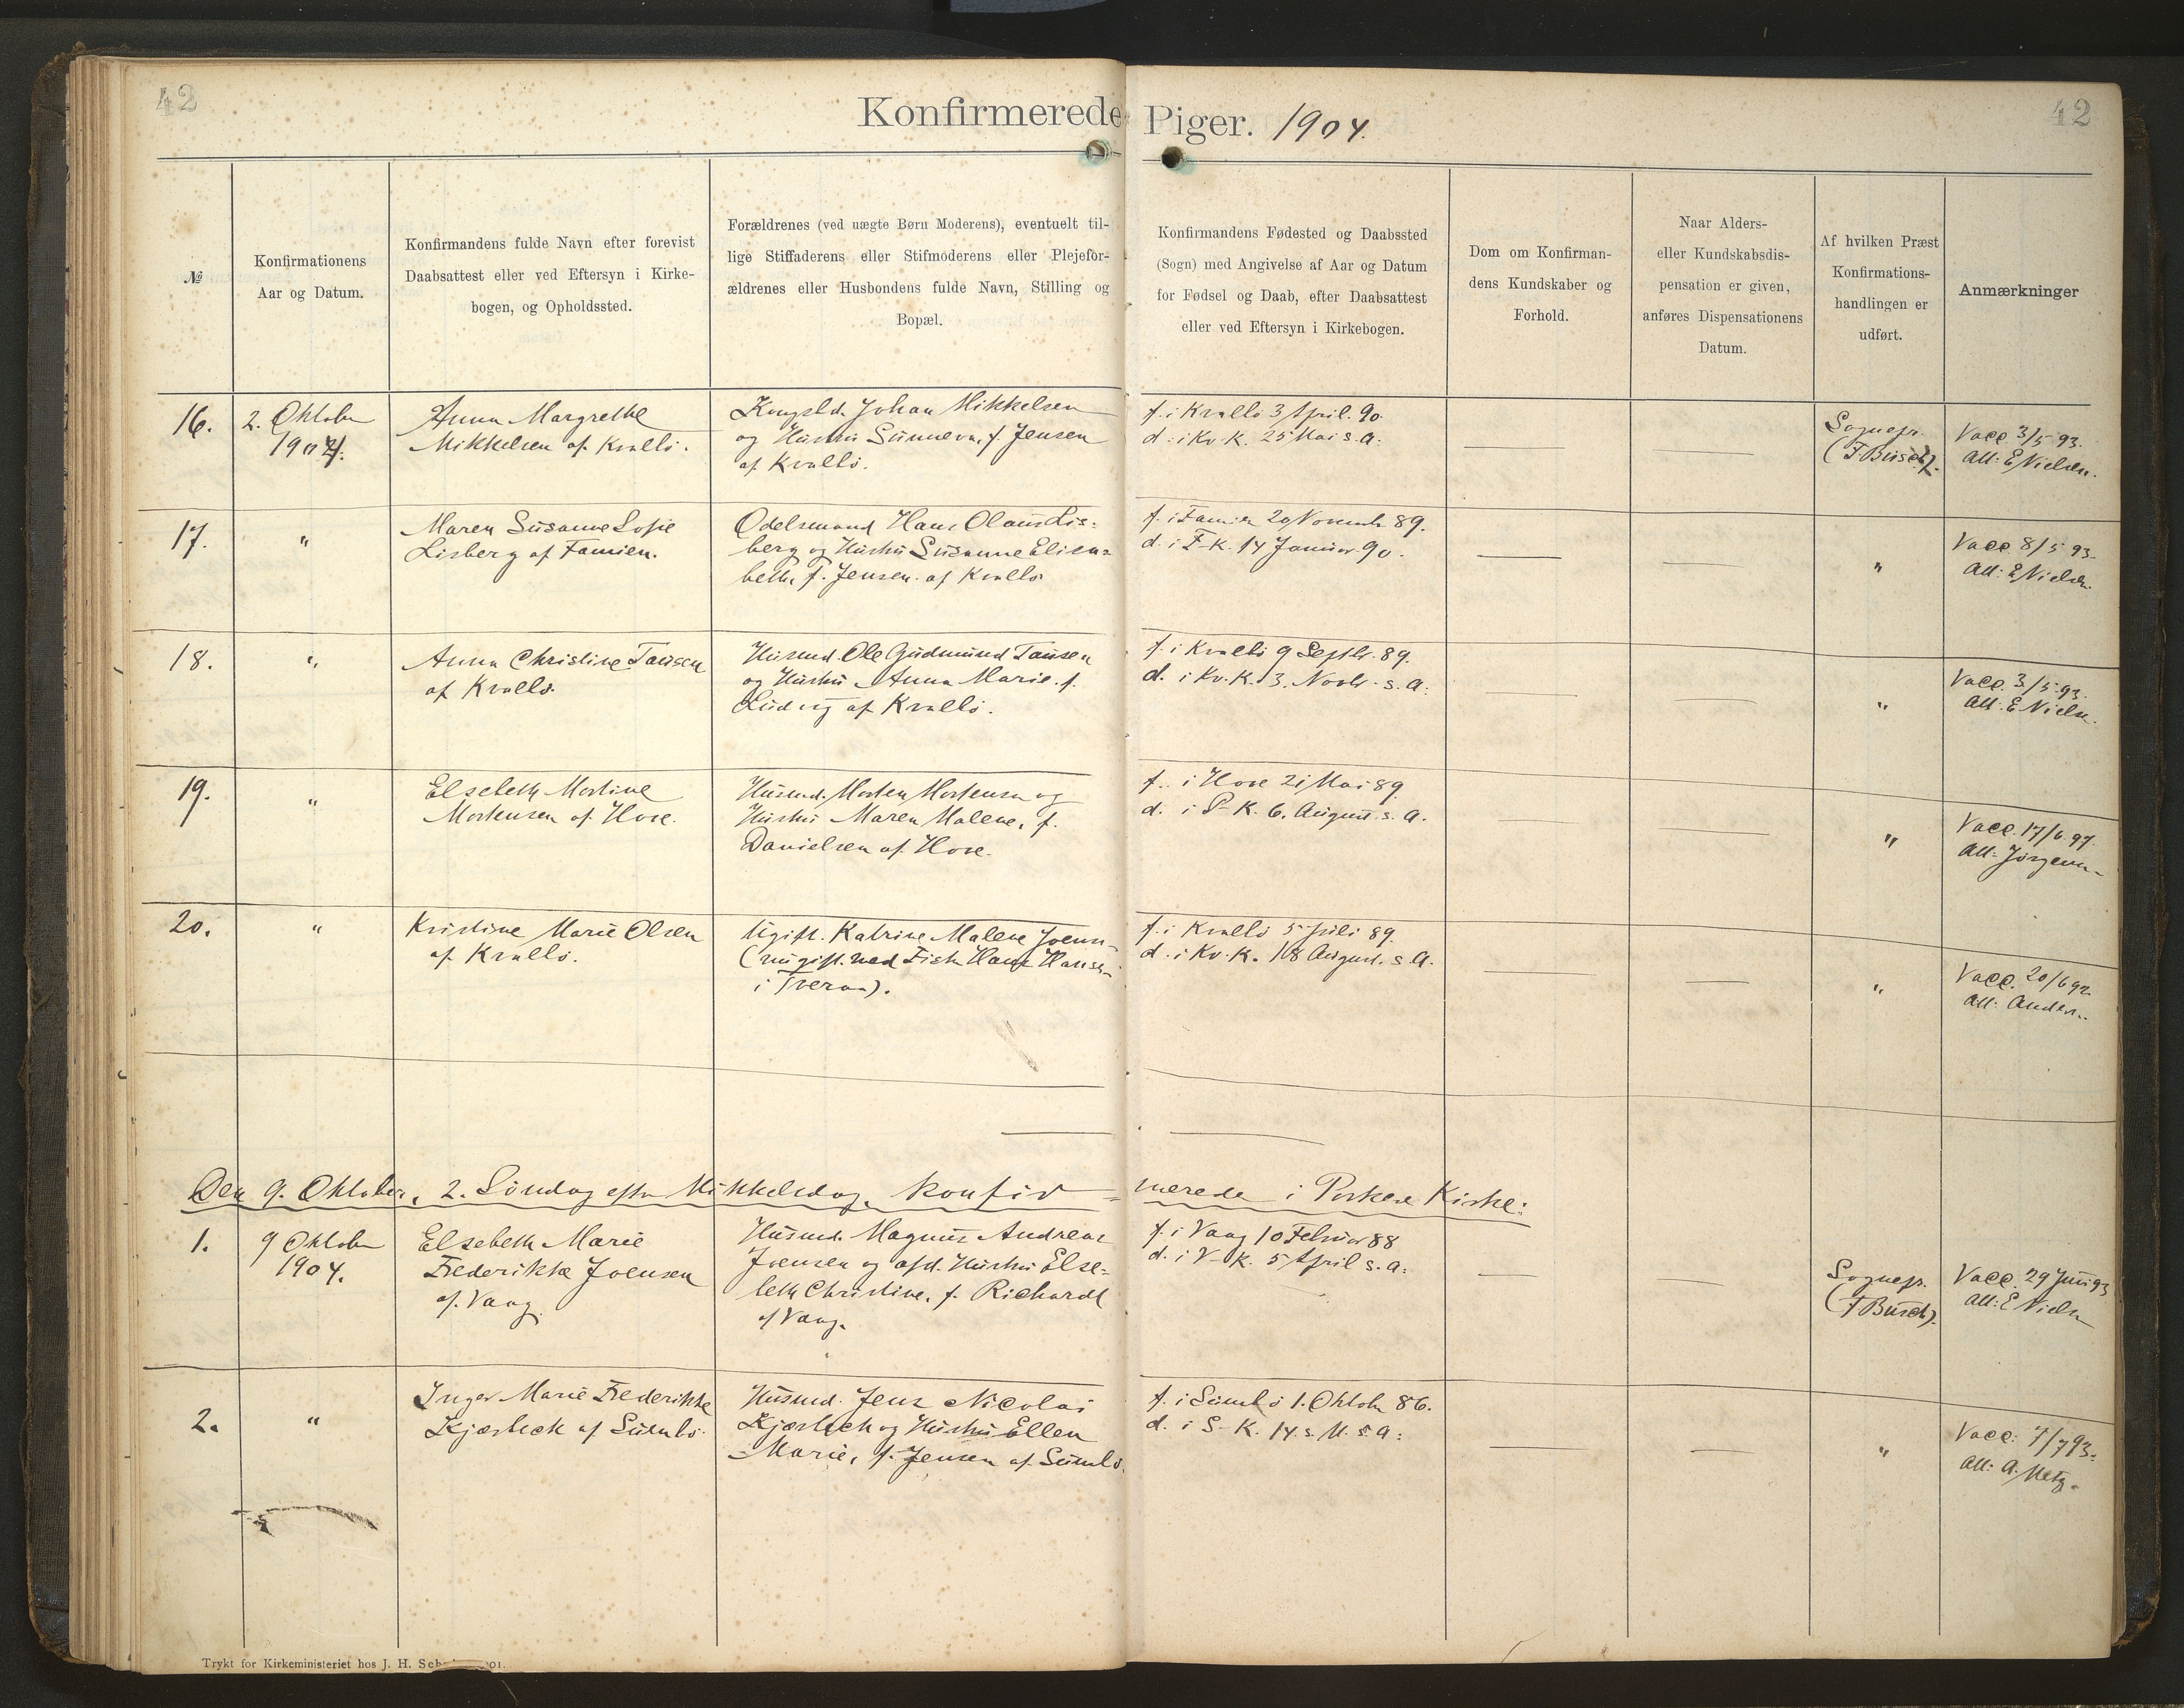 42
42
Konfirmerede Piger. 1904.
№
Konfirmationens
Aar og Datum.
Konfirmandens fulde Navn efter forevist
Daabsattest eller ved Eftersyn i Kirke-
bogen, og Opholdssted.
Forældrenes (ved uægte Børn Moderens), eventuelt til-
lige Stiffaderens eller Stifmoderens eller Plejefor-
ældrenes eller Husbondens fulde Navn, Stilling og
Bopæl.
Konfirmandens Fødested og Daabssted
(Sogn) med Angivelse af Aar og Datum
for Fødsel og Daab, efter Daabsattest
eller ved Eftersyn i Kirkebogen.
Dom om Konfirman-
dens Kundskaber og
Forhold.
Naar Alders-
eller Kundskabsdis-
pensation er given,
anføres Dispensationens
Datum.
Af hvilken Præst
Konfirmations-
handlingen er
udført.
Anmærkninger
16.
2. Oktober
1904.
Anna Margrethe
Mikkelsen af Kvalbø.
Kongsbd. Johan Mikkelsen
og Hustru Sunneva, f. Jensen
af Kvalbø.
f. i Kvalbø 3 April. 90.
d. i Kv. K. 25 Mai s. A.
Sognepr.
(F Busch).
Vacc. 3/5 93.
Att: E Nielsen.
17.
"
Maren Susanne Sofie
Lisberg af Famien.
Odelsmand Hans Olaus Lis-
berg og Hustru Susanne Elisa-
beth, f. Jensen af Kvalbø
f. i Famien 20 Novemb 89.
d. i F-K. 14 Januar 90.
"
Vacc. 8/5 93.
Att: E Nielsen.
18.
"
Anna Christine Tausen
af Kvalbø.
Husmd. Ole Gudmund Tausen
og Hustru Anna Marie, f.
Ludvig af Kvalbø.
f. i Kvalbø 9 Septbr. 89.
d. i Kv. K. 3. Novbr. s. A.
"
Vacc. 3/5 93.
Att: E Nielsen.
19.
"
Elsebeth Mortine
Mortensen af Hove.
Husmd. Morten Mortensen og
Hustru Maren Malene, f.
Danielsen af Hove.
f. i Hove 21 Mai 89.
d. i P-K. 6. August s. A.
"
Vacc. 17/6 97.
Att: Jørgensen
20.
"
Kristine Marie Olsen
af Kvalbø.
Ugift. Katrine Malene Joensen
(nu gift med Fisker Hans Hansen
i Tveraa).
f. i Kvalbø 5 Juli 89.
d. i Kv. K. 18 August. s. A.
"
Vacc. 20/6 92.
Att: Anders.
Den 9. Oktober, 2. Søndag efter Mikkelsdag, konfir=merede i Porkere Kirke:
1.
9 Oktober
1904.
Elsebeth Marie
Frederikke Joensen
af Vaag.
Husmd. Magnus Andreas
Joensen og afd. Hustru Else-
beth Christine, f. Richardt
af Vaag.
f. i Vaag 10 Februar 88
d. i V-K. 5 April s. A.
Sognepr.
(F Busch).
Vacc. 29 Juni 93
Att: E Nielsen
2.
"
Inger Marie Frederikke
Kjærbech af Sumbø.
Husmd. Jens Nicolai
Kjærbech og Hustru Ellen
Marie, f. Jensen af Sumbø.
f. i Sumbø 1. Oktober 86.
d. i S-K. 14 s. M. s. A.
"
Vacc. 7/7 93.
Att: A. Metz.
Trykt for Kirkeministeriet hos J. H.